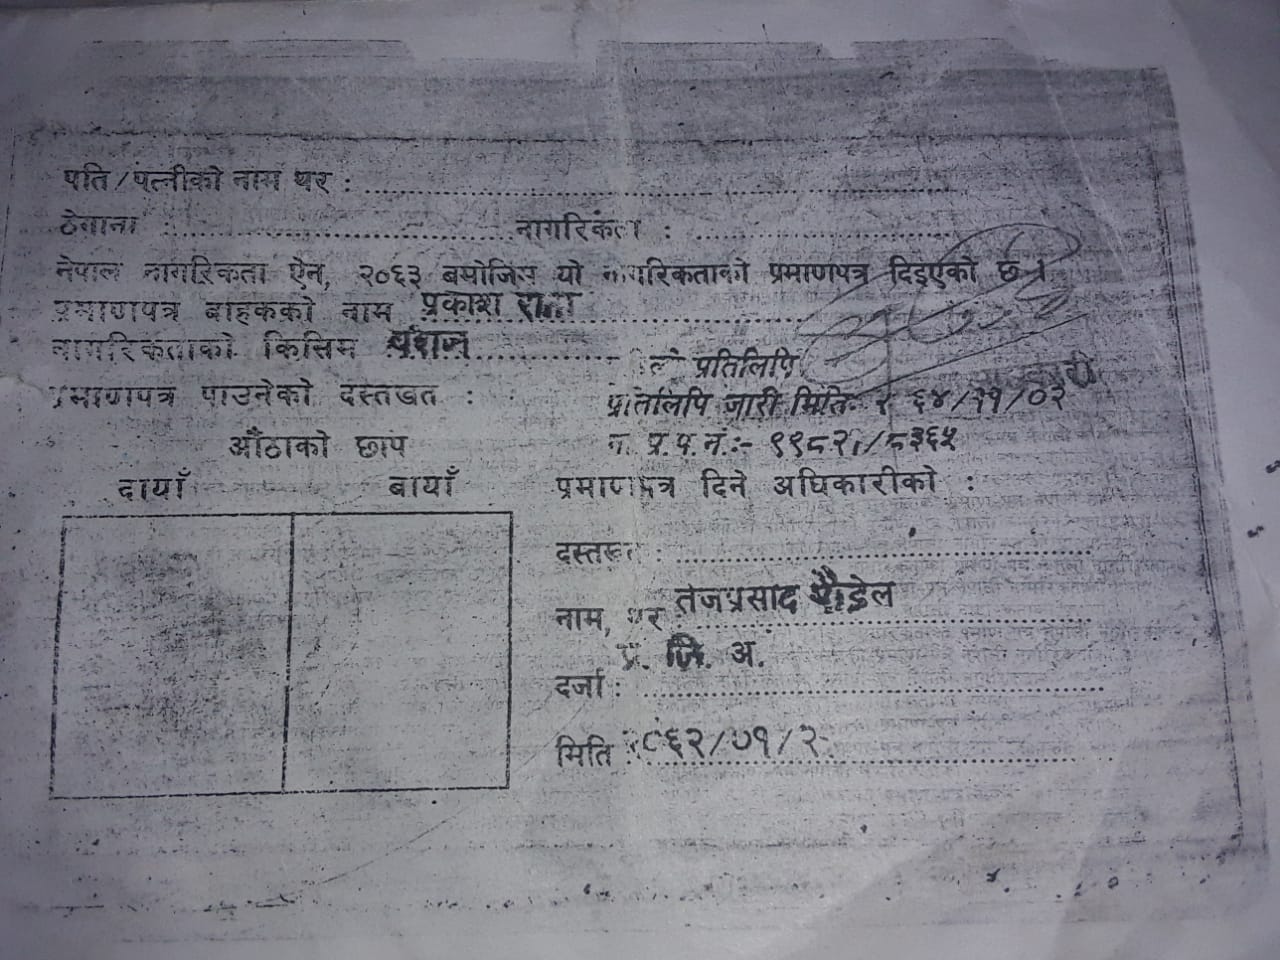 पति/पत्नीको नाम थर :
ठेगाना : नागरिकता :
नेपाल नागरिकता ऐन, २०६३ बमोजिम यो नागरिकताको प्रमाणपत्र दिइएको छ ।
प्रमाणपत्र वाहकको नाम प्रकाश
नागरिकताको किसिम वंशज
प्रतिलिपि
प्रमाणपत्र पाउनेको दस्तखत :
प्रतिलिपि जारी मिति:- ६४/११/०२
औंठाको छाप
ना. प्र. प. नं.:-
दायाँ बायाँ
प्रमाणपत्र दिने अधिकारीको :
दस्तखत :
नाम, थर तेजप्रसाद पौडेल
प्र. जि. अ.
दर्जा :
मिति :